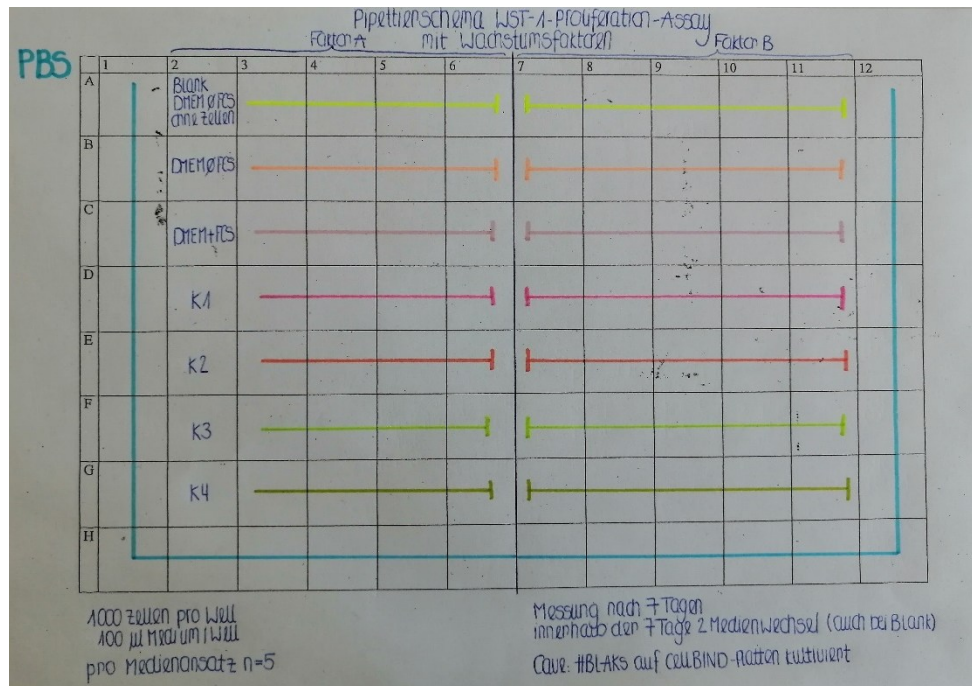 Pipettierschema WST-1-Proliferation-Assay
mit Wachstumsfaktoren
Faktor A
Faktor B
PBS
1 2 3 4 5 6 7 8 9 10 11 12
A
Blank
DMEM ØFCS
ohne Zellen
B
DMEMØFCS
C
DMEM+FCS
D
K1
E
K2
F
K3
G
K4
H
1000 Zellen pro Well
100 µl Medium/Well
pro Medienansatz n=5
Messung nach 7 Tagen
innerhalb der 7 Tage 2 Medienwechsel (auch bei Blank)
Cave: HBLAKs auf CellBIND-Platten kultiviert